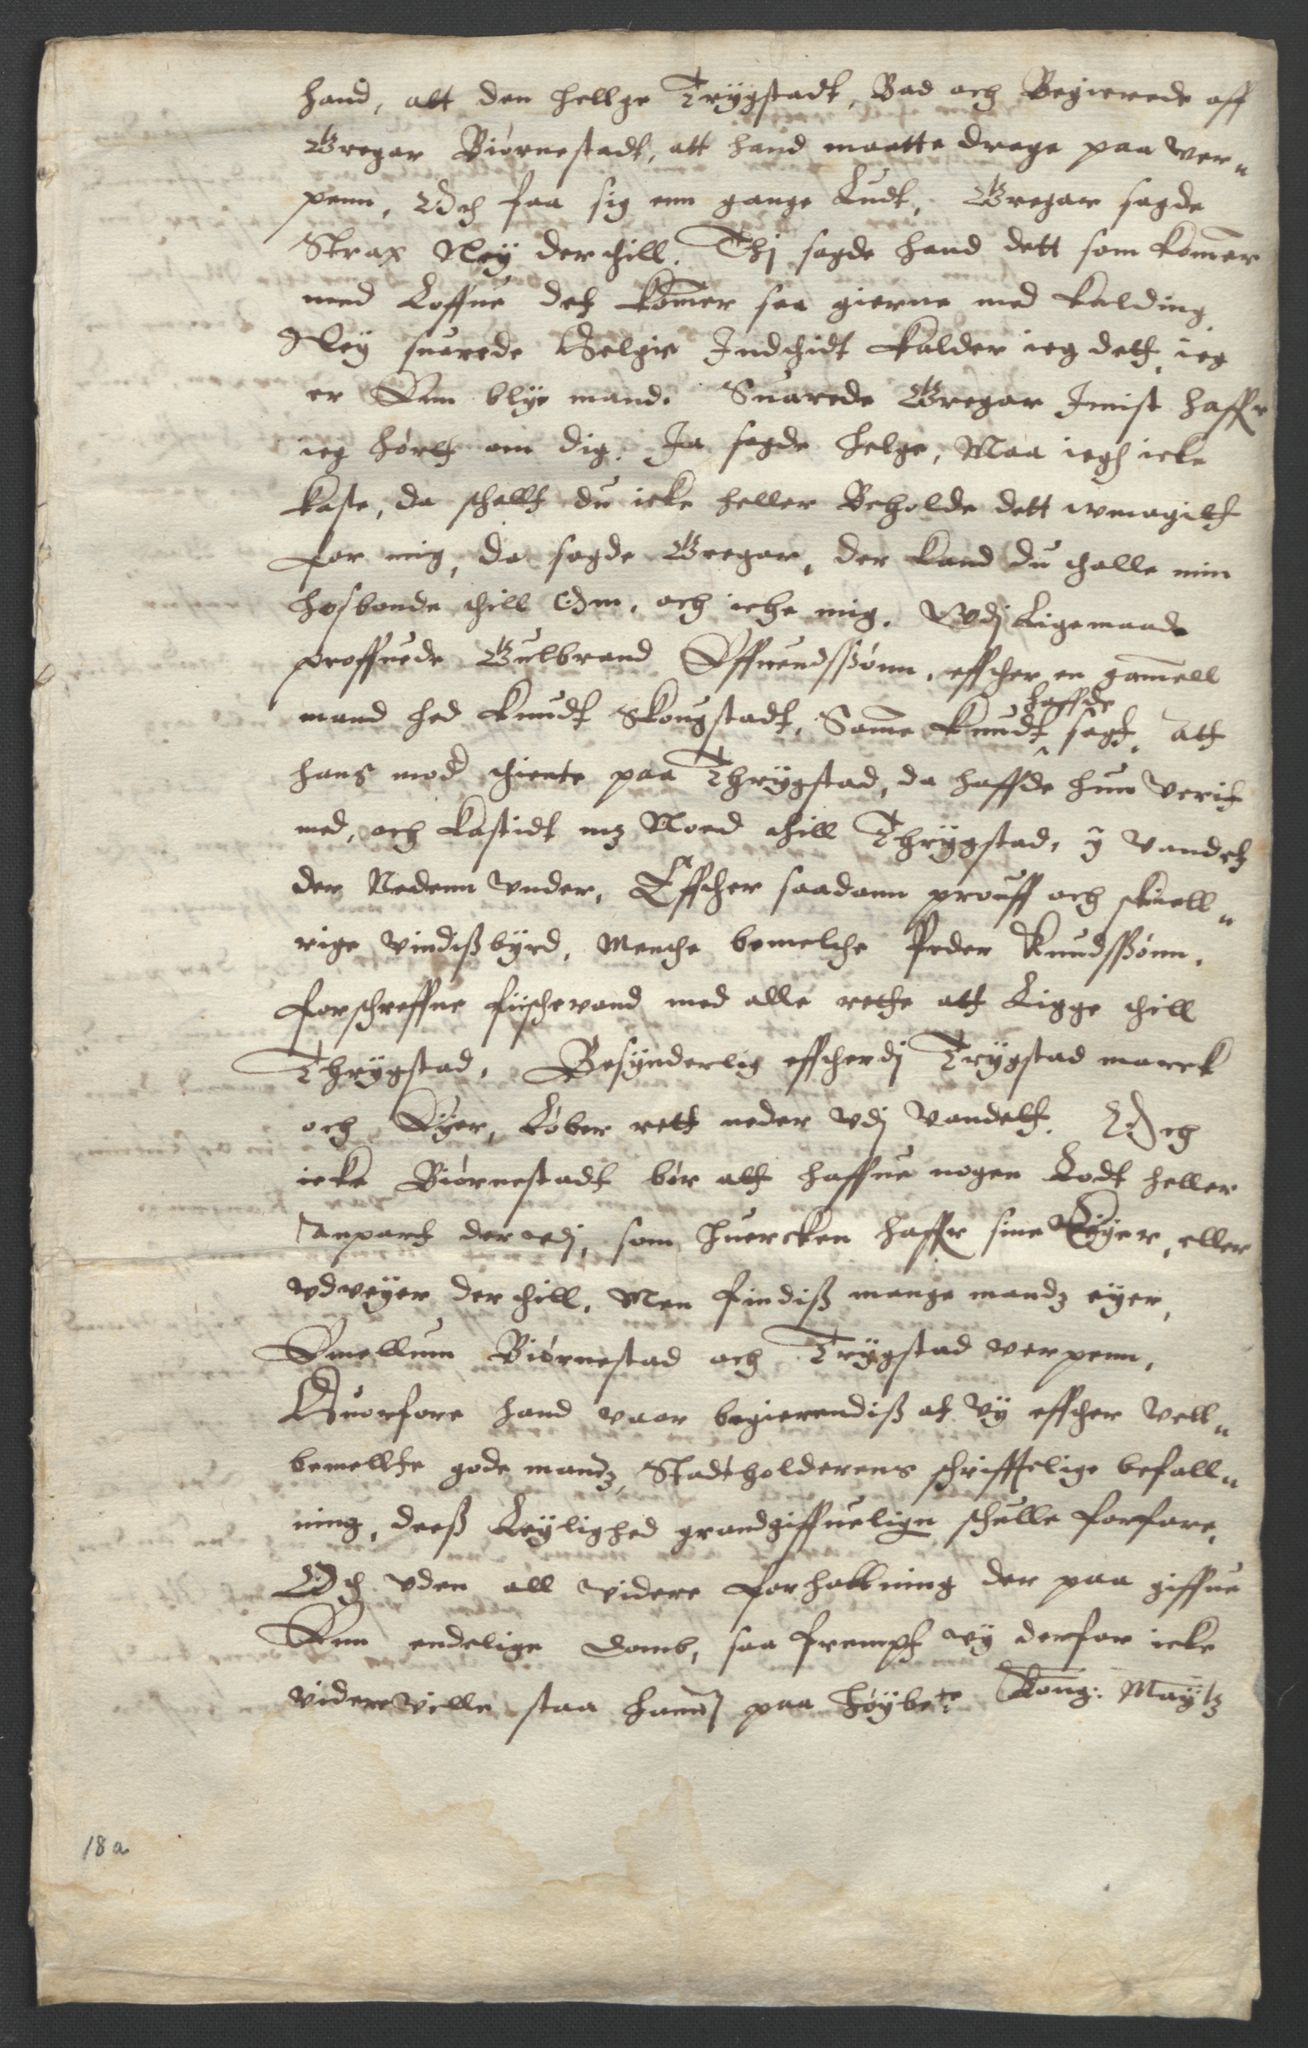 hand, att den hellge Trygstadt, Bad och Begierede aff
Gregar Biørnestadt, att hand maatte drage paa ver„
penn, Och faa sig enn gange Kudt, Gregar sagde
Strax Ney der thill. Thj sagde hand dett som komer
med Loffue det komer saa gierne med kalding
Ney suarede Helgie Indthidt kalder ieg dett, ieg
er Enn blye mand. Suarede Gregar Imist haffr
ieg hørtt om dig. Ja sagde helge, Maa iegh icke
kaste, da schallt du icke heller Beholde dett wmagitt
for mig, da sagde Gregar, der kand du thalle min
hosbonde thill Om, och iche mig. Vdj Ligemaade
proffuede Gulbrand Effuendssønn, effther en gamell
mand hed Knudt Skougstadt, Same Knudt haffde sagt, att
hans mod thiente paa Thrygstad, da haffde hun Verit
med, och kastidt mz Noed thill Thrygstad, y vandet
der Nedenn vnder, Effther saadann prouff och skiell„
rige vindissbyrd, Menthe bemelthe Peder Knudssønn,
forschreffne fiischevand med alle rette att Ligge thill
Thrygstad, Besynderlig efftherdj Trygstad marck
och Eyer, Løber rett neder vdj Vandett. Och
icke Biørnestadt bør att haffue nogen Lodt heller
anpart der vdj, som huercken haffr sine Eyer, eller
vdveyer der thill, Men findiss mange mandz eyer,
Emellum Biørnestad och Trygstad verpenn,
Huorfore hand vaar begierendiss at vy effther Vell„
bemelte gode mandz, Stadtholderens schrifftlige befall„
ning, dess Leylighed grandgiffuelign schulle forfare,
Och vden all videre forhallning der paa giffue
Enn endelige domb, saa frempt vy derfor icke
videre ville staa hannss paa høybete Kong: Maytz
18a